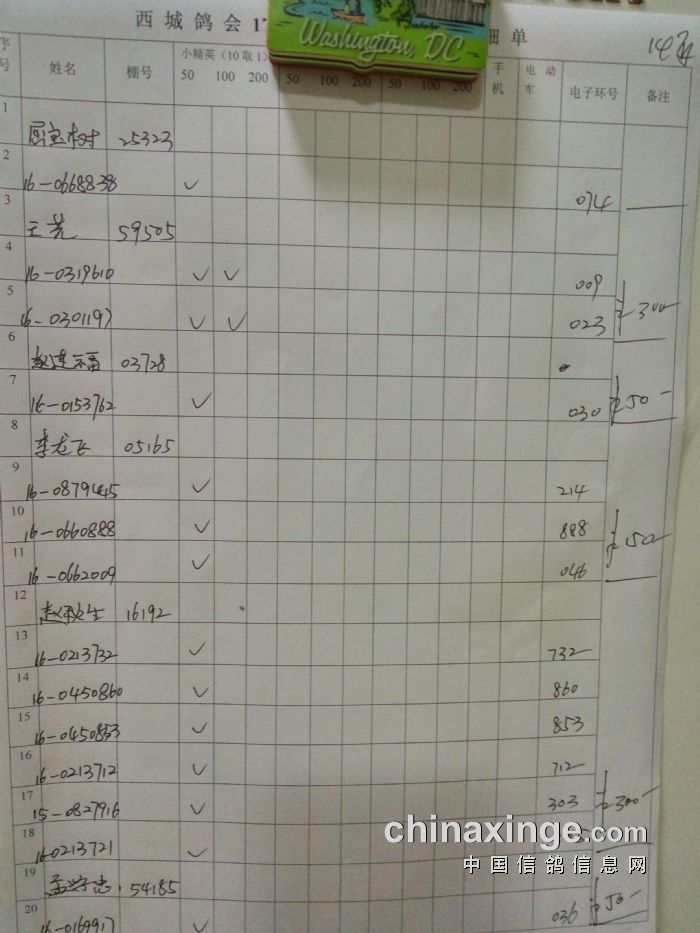 西城鸽会17 细单
Washington, DC
序号 姓名 棚号 小精英（10取1） 50 100 200 50 100 200 50 100 200 手机 电动车 电子环号 备注
1 屈宝树 25323
2 16-0668838 ✓ 074
3 王芫 59505
4 16-0319610 ✓ ✓ 009
5 16-0301197 ✓ ✓ 023 300
6 赵建福 03728
7 16-0153762 ✓ 030 50
8 李龙飞 05165
9 16-0879445 ✓ 214
10 16-0660888 ✓ 888 150
11 16-0662009 ✓ 046
12 赵秋生 16192
13 16-0213732 ✓ 732
14 16-0450860 ✓ 860
15 16-0450853 ✓ 853
16 16-0213712 ✓ 712
17 15-0827916 ✓ 303 300
18 16-0213721 ✓
19 孟学忠 54185
20 16-0169917 ✓ 036 50
chinaxinge.com
中国信鸽信息网